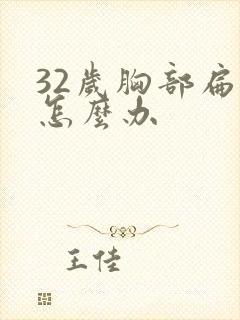 32歲胸部扁
怎麼办
王佳